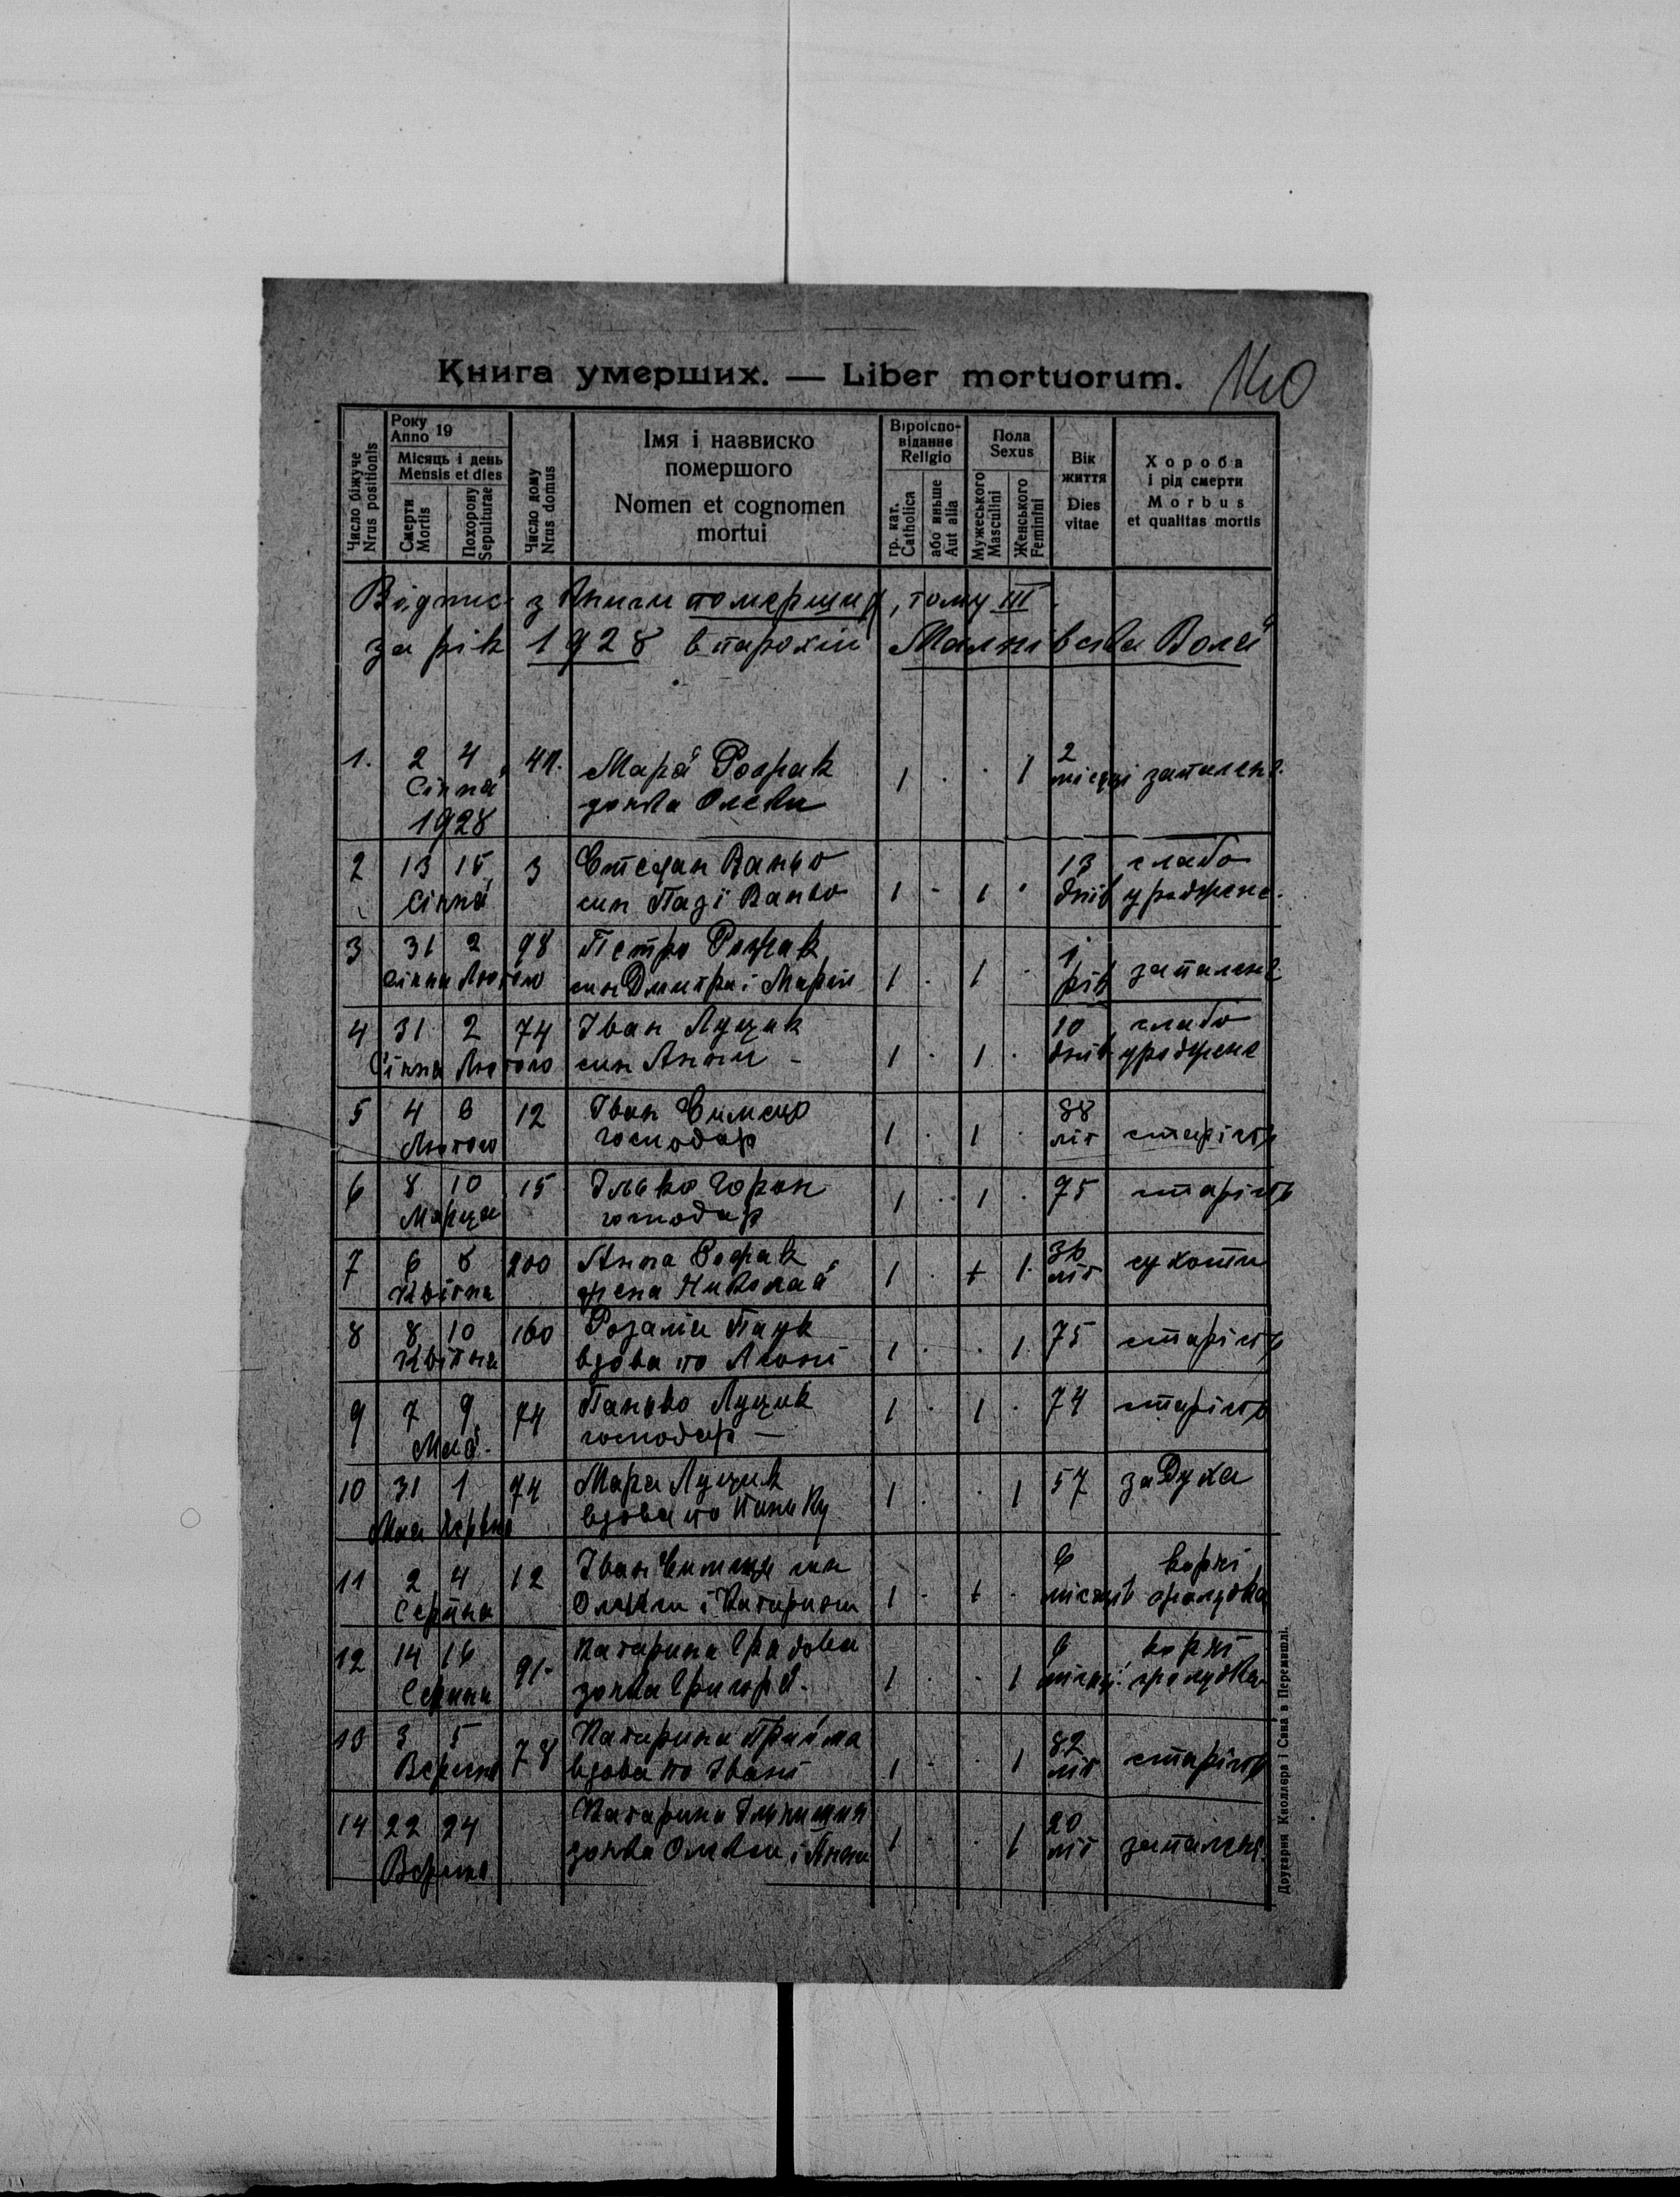 Книга умерших. — Liber mortuorum.
140
Число біжуче
Nrus positionis
Року
Anno 19
Місяць і день
Mensis et dies
Смерти
Mortis
Похорону
Sepulturae
Число дому
Nrus domus
Імя і назвиско
помершого
Nomen et cognomen
mortui
Віроіспо-
відання
Religio
гр. кат.
Catholica
або иньше
Aut alia
Пола
Sexus
Мужеського
Masculini
Женського
Feminini
Вік
життя
Dies
vitae
Хороба
і рід смерти
Morbus
et qualitas mortis
Відпис з Книги померших, тому III
за рік 1928 в парохії Малнівська Воля
1. 2 4 41. Марія 1 . . 1 2 місяці запалень.
Січня донька Олекси
1928
2 13 15 3 Стефан Ванько 1 - 1 . 13 слабо
Січня син Пазі Ванько днів уроджене.
3 31 2 98 Петро 1 . 1 . 1 запалень
Січня Лютого син Дмитра і Марії рік
4 31 2 74 Іван Луцик 1 . 1 . 10 слабо
Січня Лютого син Анни - днів уроджене
5 4 6 12 Іван 1 . 1 . 88 старість
Лютого господар літ
6 8 10 15 Ілько Горон 1 . 1 . 75 старість
Марця господар
7 6 8 200 Анна 1 . + 1. 36 сухоти
Квітня жена Николая літ
8 8 10 160 Розалія Паук 1 . . 1. 75 старість
Квітня вдова по
9 7 9 74 Панько Луцик 1 . 1 . 74 старість
Мая. господар —
10 31 1 74 Мария Луцик 1 . . 1 57 задуха
Мая Червня вдова по Паньку
11 2 4 12 Іван син 1 - + . 6 корчі
Серпня Олекси і Катарини місяців жолудка
12 14 16 91- Катарина 1 . . 1 6 корчі
Серпня донька Григорія. місяці жолудка
13 3 5 78 Катарина Прийма 1 . . 1 82 старість
Вересня вдова по Івані літ
14 22 24 Катарина 1 . . 1 20 запалень.
Вересня донька Олекси і Анни літ
Друкарня Кноллера і Сина в Перемишлі.